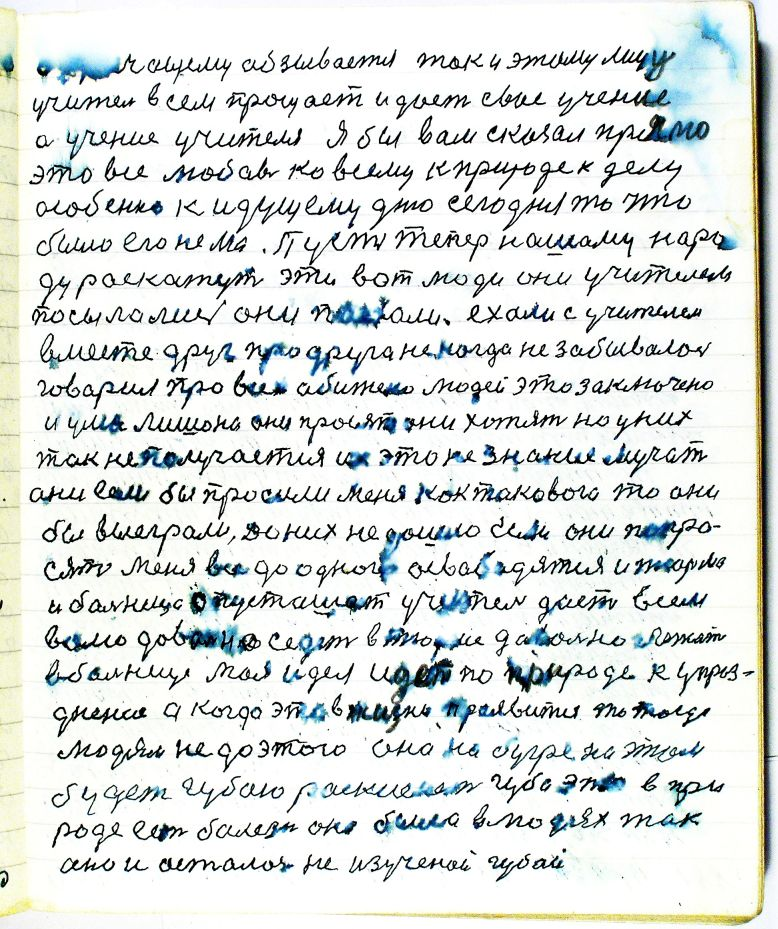 чащему абзывается так и этому лицу
учител всем прощает и дает свае учение
а учение учителя я был вам сказал прямо
это все любов ко всему к природе к делу
особенно к идущему дню сегодня то что
было его нема. Пусть тепер нашаму наро
ду раскажут эти вот люди они учителем
посылалися они поехали. ехали с учителем
вместе друг про друга не когда не забывалося
говарил про всех абижено людей это заключено
и ума лишона они просят они хотят но у них
так не получается их это не знание мучат
ани если бы просили меня как такового то они
бы выеграли, до них недошло если они попро-
сять меня все до одного освабадятся и тюрма
и балница опусташает учител дает всем
вамо доволно седет в тюрме даволно лежат
в балнице моя идея идет по природе к упраз-
днению а когда это в жизни праявится то тогда
людям не до этого она на бугре на этом
будет губаю раскисат губа это в при
роде ест балезн она была в людях так
ано и осталося не изученой губай